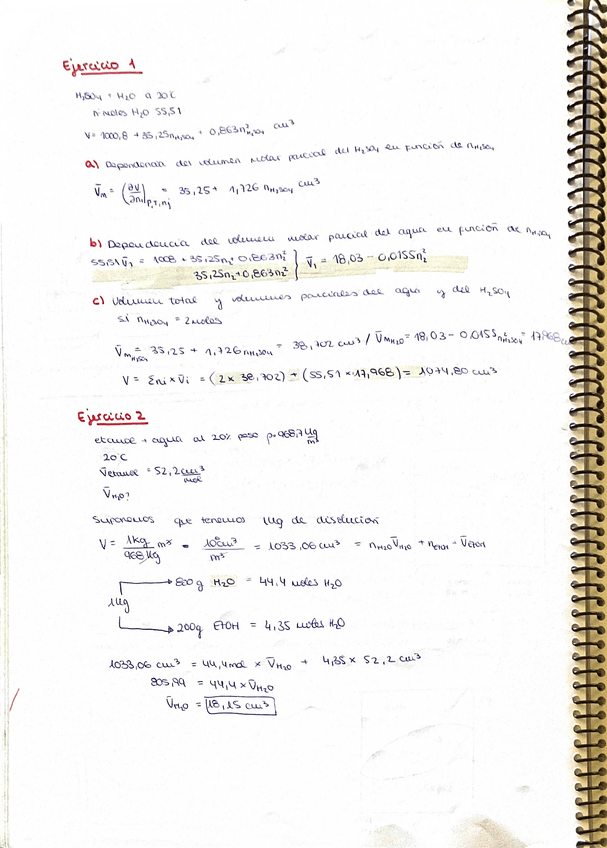 Ejercicio 1
H₂SO₄ + H₂O a 20℃
n moles H₂O 55,51
V = 1000,8 + 35,25n_H₂SO₄ + 0,863n²_H₂SO₄ cm³
a) Dependencia del volumen molar parcial del H₂SO₄ en función de n_H₂SO₄
V̄m = (∂V/∂n₁)P,T,nj = 35,25 + 1,726 n_H₂SO₄ cm³
b) Dependencia del volumen molar parcial del agua en función de n_H₂SO₄
55,51 V̄₁ = 1008 + 35,25n₂ + 0,863n₂² } V̄₁ = 18,03 - 0,0155n₂²
35,25n₂ + 0,863n₂²
c) Volumen total y volumenes parciales del agua y del H₂SO₄
si n_H₂SO₄ = 2 moles
V̄m_H₂SO₄ = 35,25 + 1,726n_H₂SO₄ = 38,702 cm³ / V̄m_H₂O = 18,03 - 0,0155n²_H₂SO₄ = 17,968 cm
V = Σni × V̄i = (2 × 38,702) + (55,51 × 17,968) = 1074,80 cm³
Ejercicio 2
etanol + agua al 20% peso ρ=968,7 kg/m³
20℃
V̄etanol = 52,2 cm³/mol
V̄H₂O?
Suponemos que tenemos 1kg de disolución
V = 1kg/968kg m³ = 10⁶cm³/m³ = 1033,06 cm³ = nH₂O V̄H₂O + nEtOH · V̄EtOH
800g H₂O = 44,4 moles H₂O
1kg
200g EtOH = 4,35 moles H₂O
1033,06 cm³ = 44,4mol × V̄H₂O + 4,35 × 52,2 cm³
805,99 = 44,4 × V̄H₂O
V̄H₂O = 18,15 cm³